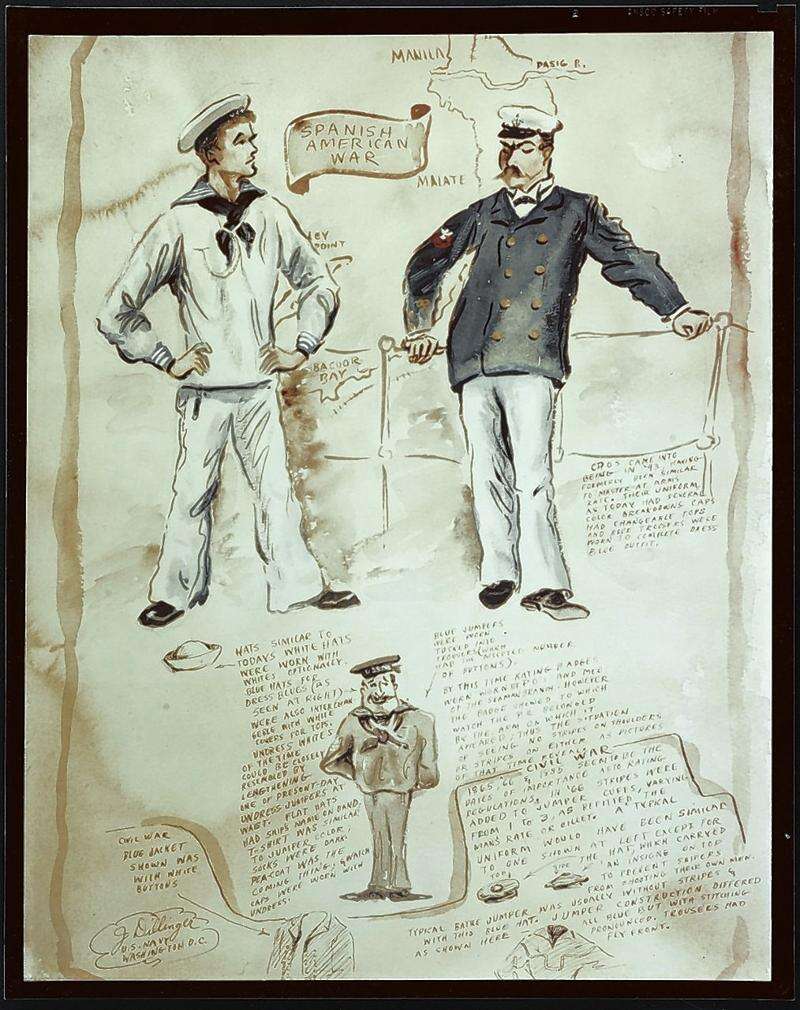 ANSCO SAFETY FILM
MANILA
PASIG R.
SPANISH
AMERICAN
WAR
MALATE
POINT
BACOOR
BAY
CPOS CAME INTO
BEING IN '93, HAVING
FORMERLY BEEN SIMILAR
TO MASTER-AT-ARMS
RATE. THEIR UNIFORM
AS TODAY HAD SEVERAL
COLOR BREAKDOWNS CAPS
HAD CHANGEABLE TOPS
AND BLUE TROUSERS WERE
WORN TO COMPLETE DRESS
BLUE OUTFIT.
HATS SIMILAR TO
TODAYS WHITE HATS
WERE WORN WITH
WHITES OPTIONALLY.
BLUE HATS FOR
DRESS BLUES (AS
SEEN AT RIGHT)
WERE ALSO INTERCHAN
GEBLE WITH WHITE
COVERS FOR TOP.
UNDRESS WHITES
OF THE TIME
COULD BE CLOSELY
RESEMBLED BY
LENGTHENING
ONE OF PRESENT-DAY
UNDRESS JUMPERS AT
WAIST. FLAT HATS
HAD SHIPS NAME ON BAND.
T-SHIRT WAS SIMILAR
TO JUMPER COLOR,
SOCKS WERE DARK.
PEA-COAT WAS THE
COMING THING, & WATCH
CAPS WERE WORN WITH
UNDRESS.
BLUE JUMPERS
WERE WORN
TUCKED INTO
TROUSERS (WHICH
HAD UNSPECIFIED NUMBER
OF BUTTONS).
BY THIS TIME RATING BADGES
WERE WORN BY POS AND MEN
OF THE SEAMAN BRANCH. HOWEVER
THE BADGE SHOWED TO WHICH
WATCH THE PO BELONGED
BY THE ARM ON WHICH IT
APPEARED. THUS THE SITUATION
OF SEEING NO STRIPES ON SHOULDERS
OR STRIPES ON EITHER AS PICTURES
OF THAT TIME REVEAL.
CIVIL WAR
1865, 66 & 1885 SEEM TO BE THE
DATES OF IMPORTANCE AS TO RATING
REGULATIONS. IN '66 STRIPES WERE
ADDED TO JUMPER CUFFS, VARYING
FROM 1 TO 3, AS BEFITTED THE
MAN'S RATE OR BILLET. A TYPICAL
UNIFORM WOULD HAVE BEEN SIMILAR
TO ONE SHOWN AT LEFT EXCEPT FOR
THE HAT, WHICH CARRIED
AN INSIGNE ON TOP
TO PREVENT SNIPERS
FROM SHOOTING THEIR OWN MEN.
TOP
SIDE
TYPICAL BATTLE JUMPER WAS USUALLY WITHOUT STRIPES &
WITH THIS BLUE HAT. JUMPER CONSTRUCTION DIFFERED
AS SHOWN HERE
ALL BLUE BUT WITH STITCHING
PRONOUNCED. TROUSERS HAD
FLY FRONT.
U.S.N.
CIVIL WAR
BLUE JACKET
SHOWN WAS
WITH WHITE
BUTTONS
J. Dillinger
U.S. NAVY
WASHINGTON D.C.